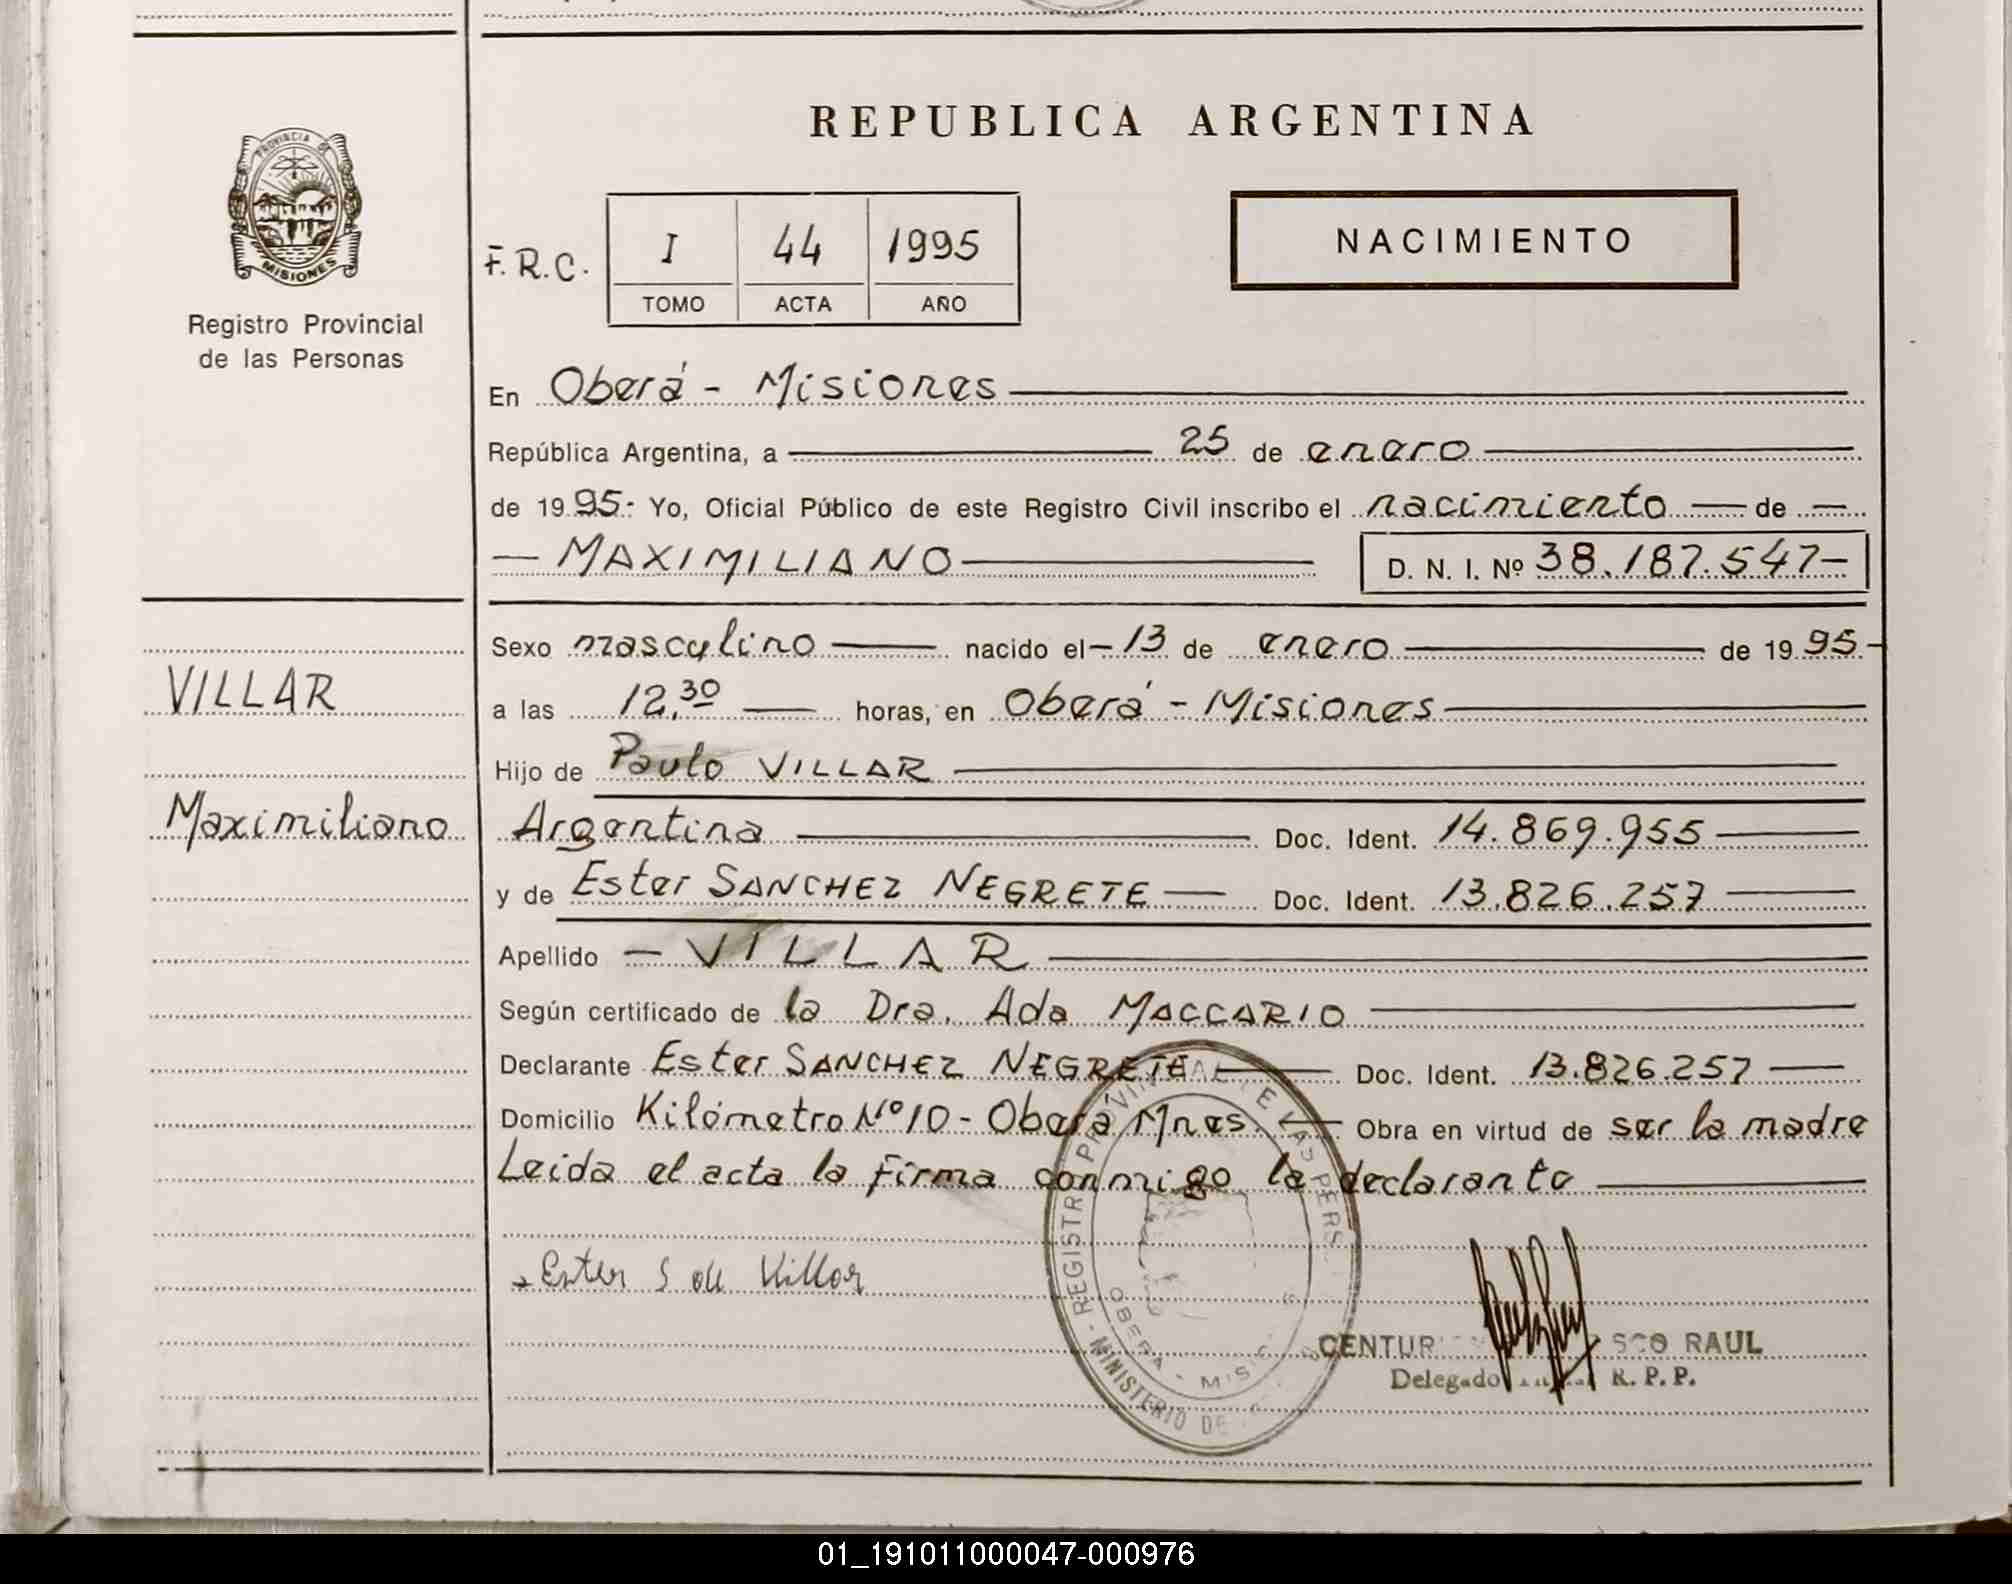 REPUBLICA ARGENTINA
PROVINCIA DE
MISIONES
Registro Provincial
de las Personas
F.R.C. I 44 1995
TOMO ACTA AÑO
NACIMIENTO
En Oberá - Misiones
República Argentina, a 25 de enero
de 1995- Yo, Oficial Público de este Registro Civil inscribo el nacimiento de
MAXIMILIANO D. N. I. Nº 38.187.547-
VILLAR
Maximiliano
Sexo masculino nacido el - 13 de enero de 1995-
a las 12,30 horas, en Oberá - Misiones
Hijo de Paulo VILLAR
Argentina Doc. Ident. 14.869.955
y de Ester SANCHEZ NEGRETE Doc. Ident. 13.826.257
Apellido - VILLAR
Según certificado de la Dra. Ada MACCARIO
Declarante Ester SANCHEZ NEGRETE Doc. Ident. 13.826.257
Domicilio Kilómetro Nº 10 - Oberá Mnes. Obra en virtud de ser la madre
Leida el acta la firma conmigo la declarante
Ester S de Villar
OBERA - MISIO
MINISTERIO DE
RAUL
Delegado R. P. P.
01_191011000047-000976